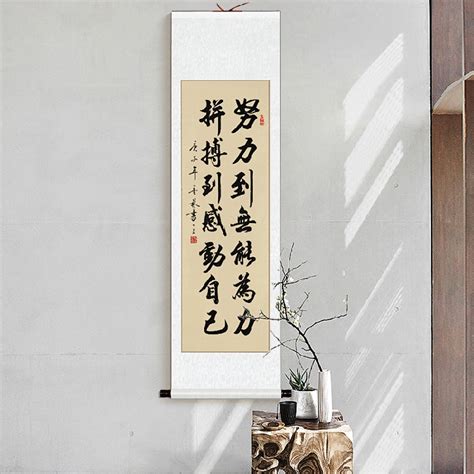 努力到無能為力
拼搏到感動自己
庚子年